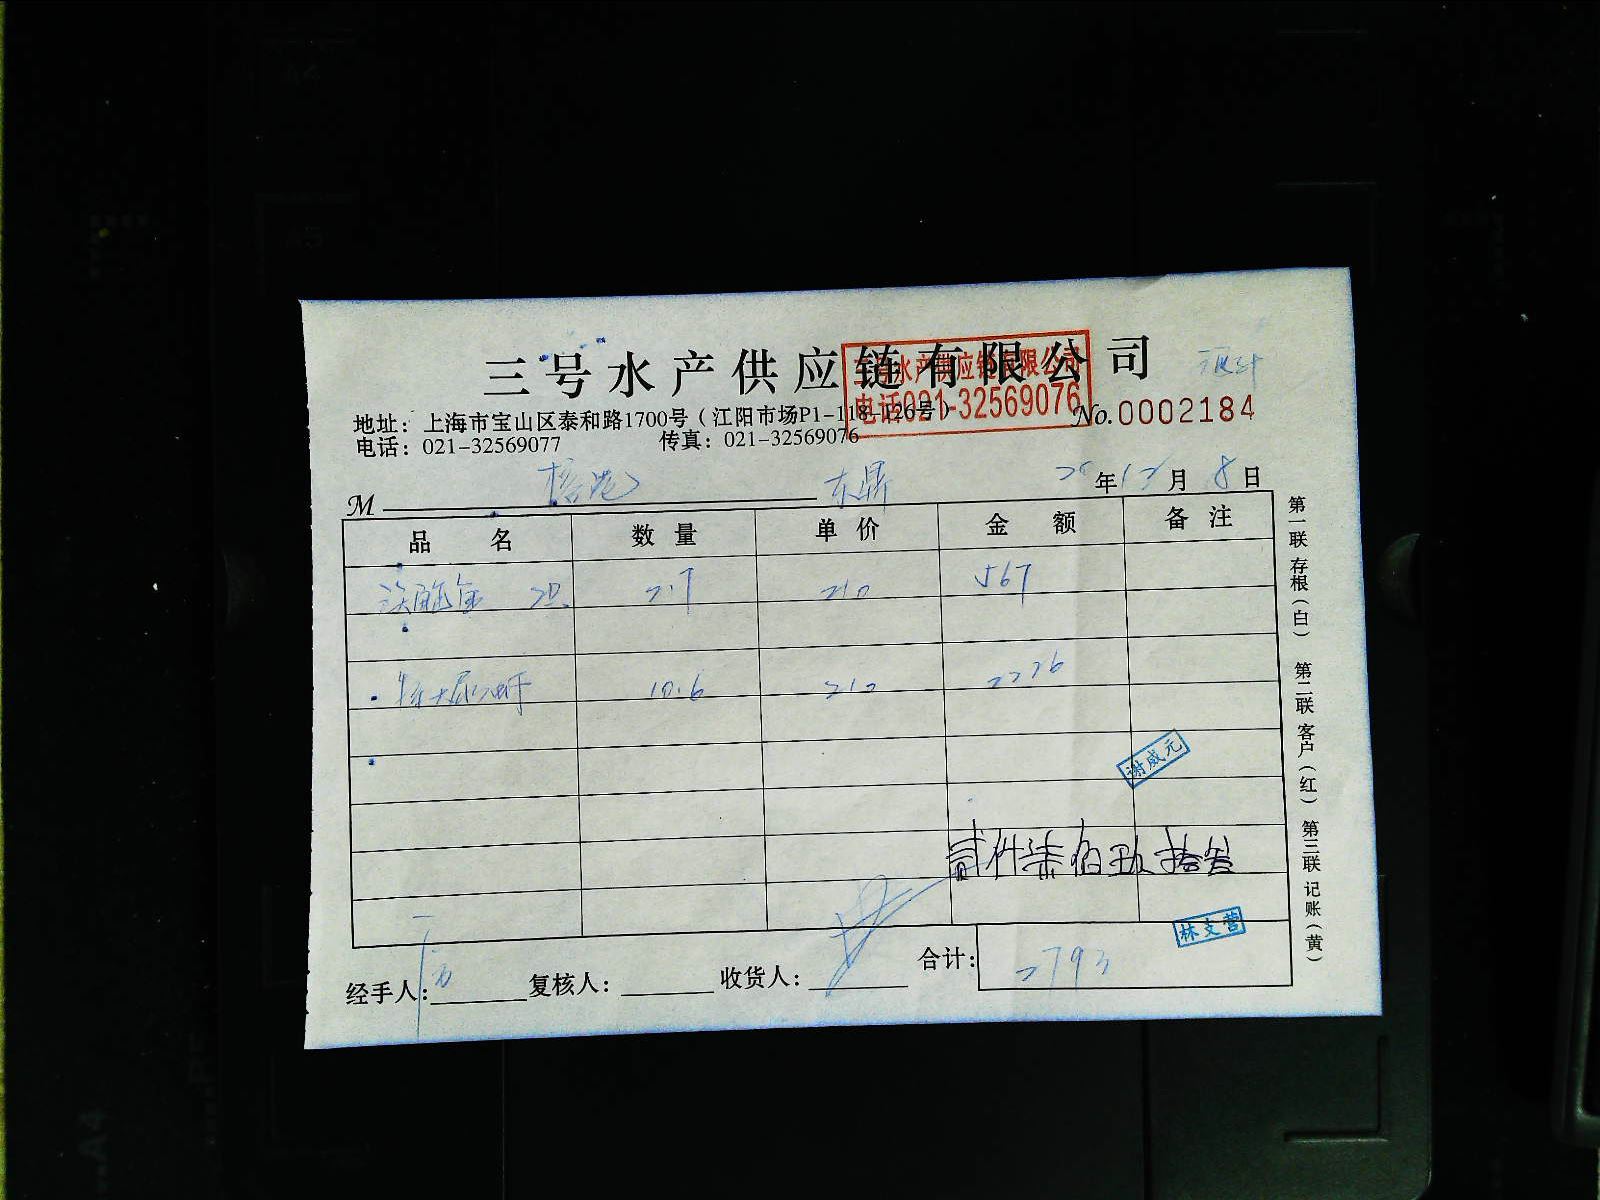 三号水产供应链有限公司
三号水产供应链有限公司
电话021-32569076
地址：上海市宝山区泰和路1700号（江阳市场P1-118-126号）
No.0002184
电话：021-32569077 传真：021-32569076
M 东鼎 25年12月8日
品名 数量 单价 金额 备注
2.7 210 567
10.6 210 2226
谢威元
贰仟柒佰玖拾叁
林支营
合计： 2793
经手人： 复核人： 收货人：
第一联 存根（白） 第二联 客户（红） 第三联 记账（黄）